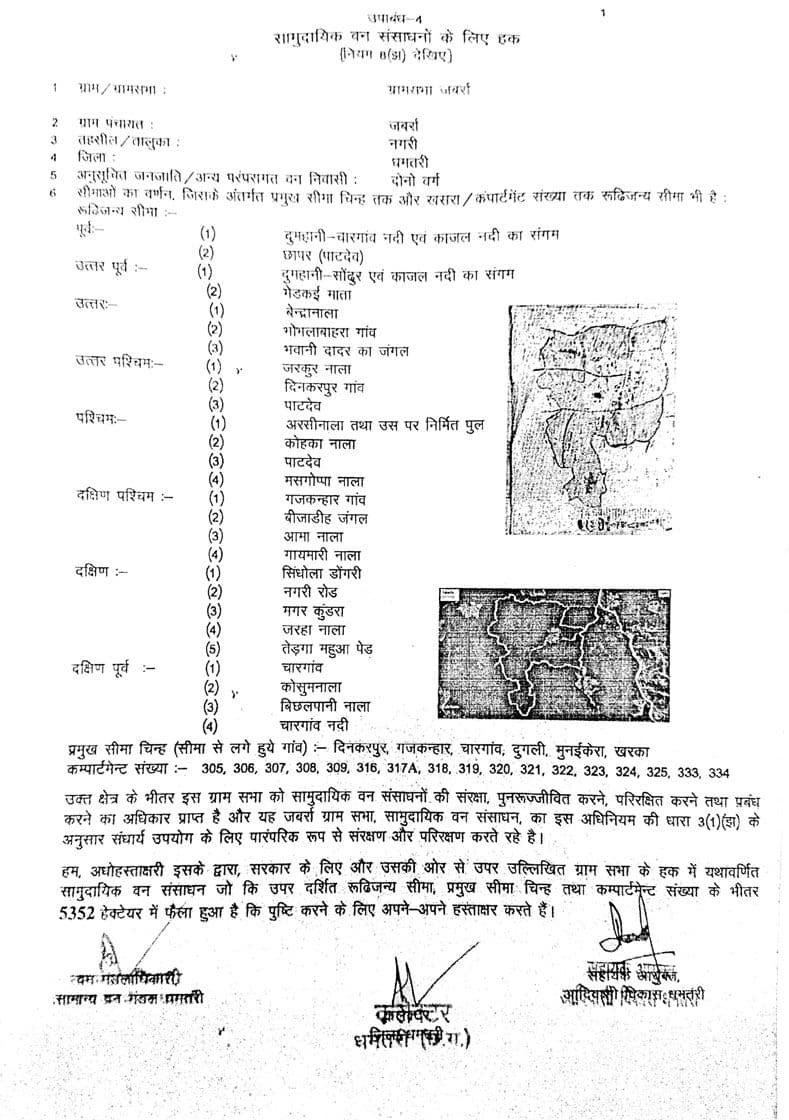 उपाबंध-4
1
सामुदायिक वन संसाधनों के लिए हक
{नियम 8(झ) देखिए}
1 ग्राम/ग्रामसभा : ग्रामसभा जबर्रा
2 ग्राम पंचायत : जबर्रा
3 तहसील/तालुका : नगरी
4 जिला : धमतरी
5 अनुसूचित जनजाति/अन्य परंपरागत वन निवासी : दोनो वर्ग
6 सीमाओं का वर्णन, जिसके अंतर्गत प्रमुख सीमा चिन्ह तक और खसरा/कंपार्टमेंट संख्या तक रूढिजन्य सीमा भी है :
रूढिजन्य सीमा :–
पूर्वः– (1) दुमहानी–चारगांव नदी एवं काजल नदी का संगम
(2) छापर (पाटदेव)
उत्तर पूर्व :– (1) दुमहानी–सोंढुर एवं काजल नदी का संगम
(2) गेडकई माता
उत्तरः– (1) बेन्द्रानाला
(2) भोभलाबाहरा गांव
(3) भवानी दादर का जंगल
उत्तर पश्चिमः– (1) जरकुर नाला
(2) दिनकरपुर गांव
(3) पाटदेव
पश्चिमः– (1) अरसीनाला तथा उस पर निर्मित पुल
(2) कोहका नाला
(3) पाटदेव
(4) मसगोप्पा नाला
दक्षिण पश्चिम :– (1) गजकन्हार गांव
(2) बीजाडीह जंगल
(3) आमा नाला
(4) गायमारी नाला
दक्षिण :– (1) सिंधोला डोंगरी
(2) नगरी रोड
(3) मगर कुंडरा
(4) जरहा नाला
(5) तेड़गा महुआ पेड़
दक्षिण पूर्व :– (1) चारगांव
(2) कोसुमनाला
(3) बिछलपानी नाला
(4) चारगांव नदी
प्रमुख सीमा चिन्ह (सीमा से लगे हुये गांव) :– दिनकरपुर, गजकन्हार, चारगांव, दुगली, मुनईकेरा, खरका
कम्पार्टमेन्ट संख्या :– 305, 306, 307, 308, 309, 316, 317A, 318, 319, 320, 321, 322, 323, 324, 325, 333, 334
उक्त क्षेत्र के भीतर इस ग्राम सभा को सामुदायिक वन संसाधनों की संरक्षा, पुनरूज्जीवित करने, परिरक्षित करने तथा प्रबंध
करने का अधिकार प्राप्त है और यह जबर्रा ग्राम सभा, सामुदायिक वन संसाधन, का इस अधिनियम की धारा 3(1)(झ) के
अनुसार संधार्य उपयोग के लिए पारंपरिक रूप से संरक्षण और परिरक्षण करते रहे है।
हम, अधोहस्ताक्षरी इसके द्वारा, सरकार के लिए और उसकी ओर से उपर उल्लिखित ग्राम सभा के हक में यथावर्णित
सामुदायिक वन संसाधन जो कि उपर दर्शित रूढिजन्य सीमा, प्रमुख सीमा चिन्ह तथा कम्पार्टमेन्ट संख्या के भीतर
5352 हेक्टेयर में फैला हुआ है कि पुष्टि करने के लिए अपने–अपने हस्ताक्षर करते हैं।
वन मंडलाधिकारी,
सामान्य वन मंडल धमतरी
कलेक्टर
धमतरी (छ.ग.)
सहायक आयुक्त,
आदिवासी विकास धमतरी